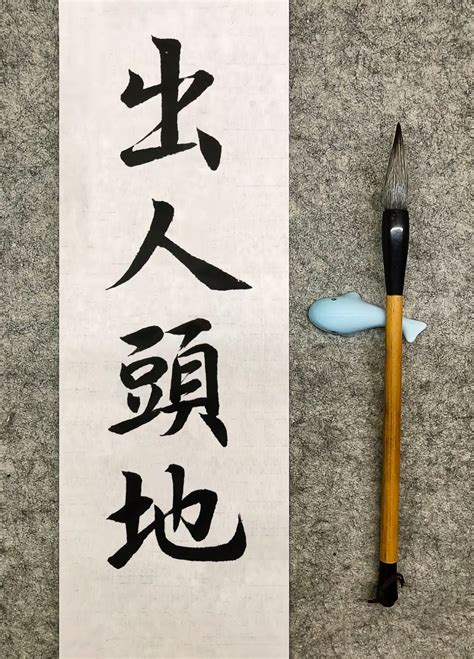 出人頭地